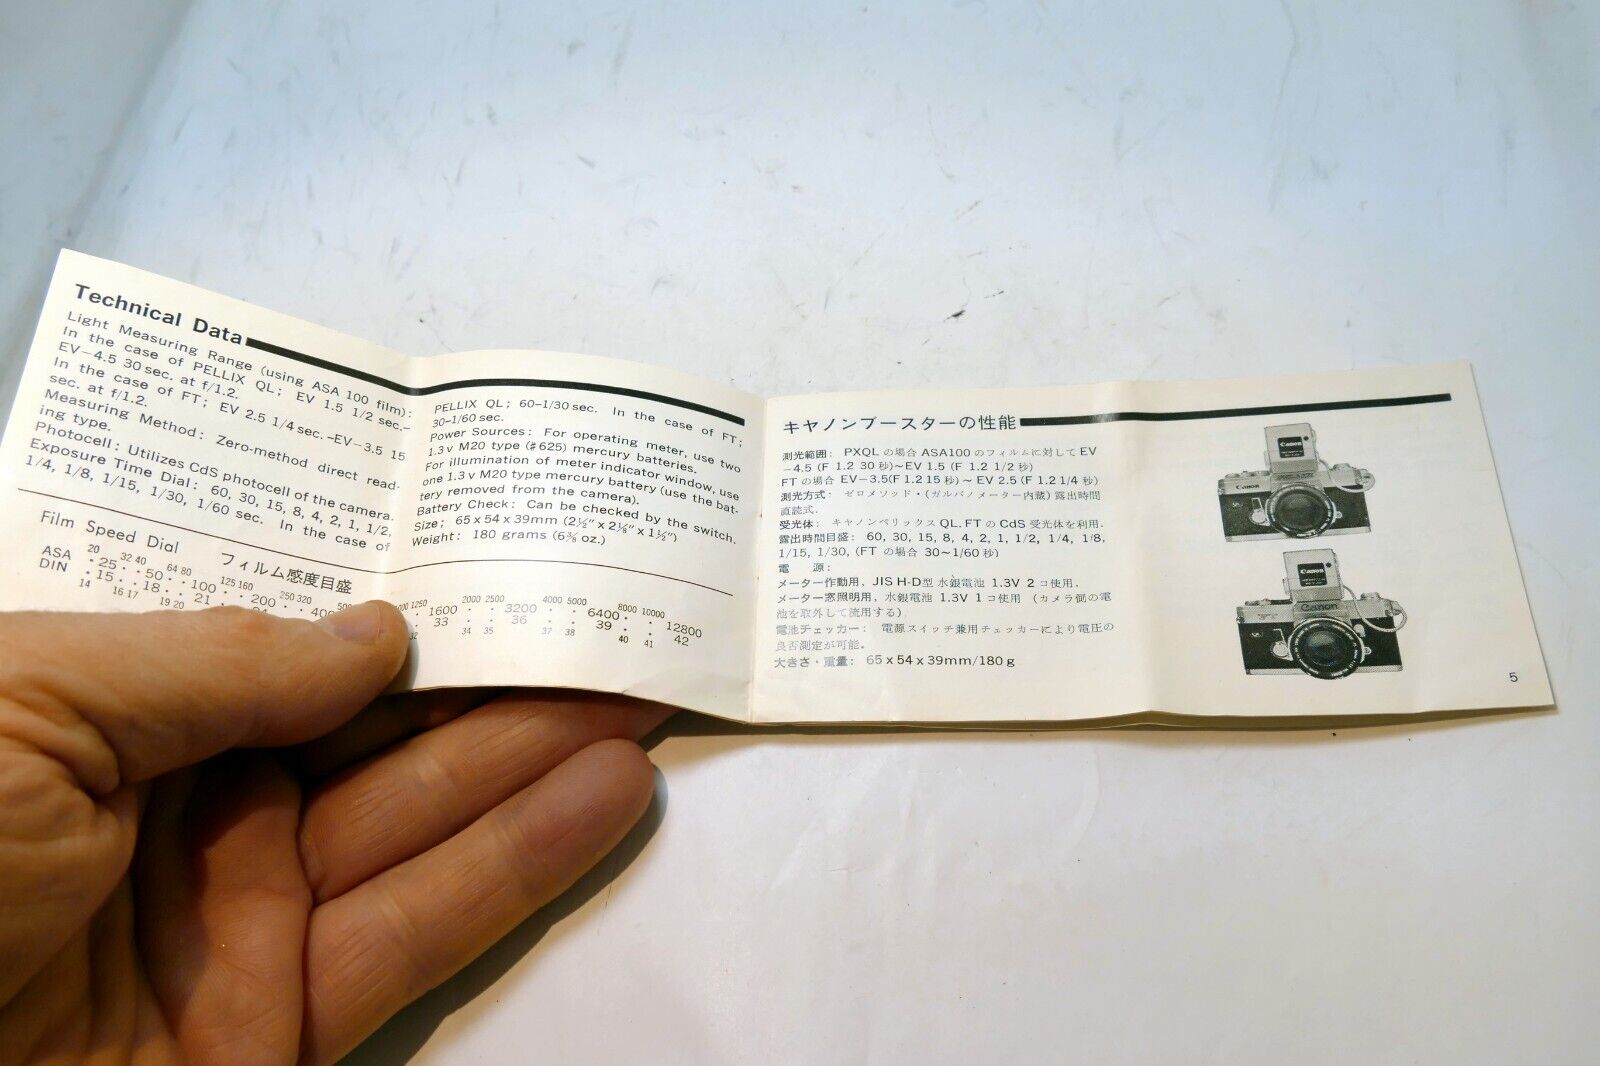 Technical Data
Light Measuring Range (using ASA 100 film):
In the case of PELLIX QL; EV 1.5 1/2 sec.–
EV−4.5 30 sec. at f/1.2.
In the case of FT; EV 2.5 1/4 sec.–EV−3.5 15
sec. at f/1.2.
Measuring Method: Zero-method direct read-
ing type.
Photocell: Utilizes CdS photocell of the camera.
Exposure Time Dial: 60, 30, 15, 8, 4, 2, 1, 1/2,
1/4, 1/8, 1/15, 1/30, 1/60 sec. In the case of
PELLIX QL; 60-1/30 sec. In the case of FT;
30-1/60 sec.
Power Sources: For operating meter, use two
1.3 v M20 type (#625) mercury batteries.
For illumination of meter indicator window, use
one 1.3 v M20 type mercury battery (use the bat-
tery removed from the camera).
Battery Check: Can be checked by the switch.
Size; 65 x 54 x 39mm (2½″ x 2⅛″ x 1½″)
Weight: 180 grams (6⅜ oz.)
Film Speed Dial フィルム感度目盛
20 32 40 64 80 125 160 250 320 1250 2000 2500 4000 5000 8000 10000
ASA ・25・・50・・100・・200・・400 1600・・3200・・6400・・12800
DIN ・15・・18・・21 33 36 39 42
14 16 17 19 20 32 34 35 37 38 40 41
キヤノンブースターの性能
測光範囲: PXQL の場合 ASA100 のフィルムに対して EV
−4.5 (F 1.2 30 秒)~EV 1.5 (F 1.2 1/2 秒)
FT の場合 EV−3.5(F 1.2 15 秒)~ EV 2.5 (F 1.2 1/4 秒)
測光方式: ゼロメソッド・(ガルバノメーター内蔵) 露出時間
直読式.
受光体: キヤノンペリックス QL. FT の CdS 受光体を利用.
露出時間目盛: 60, 30, 15, 8, 4, 2, 1, 1/2, 1/4, 1/8,
1/15, 1/30, (FT の場合 30~1/60 秒)
電 源:
メーター作動用, JIS H-D型 水銀電池 1.3V 2 コ使用.
メーター窓照明用, 水銀電池 1.3V 1 コ使用 (カメラ側の電
池を取外して流用する)
電池チェッカー: 電源スイッチ兼用チェッカーにより電圧の
良否測定が可能.
大きさ・重量: 65 x 54 x 39mm/180 g
Canon
Canon
Canon
Canon
5